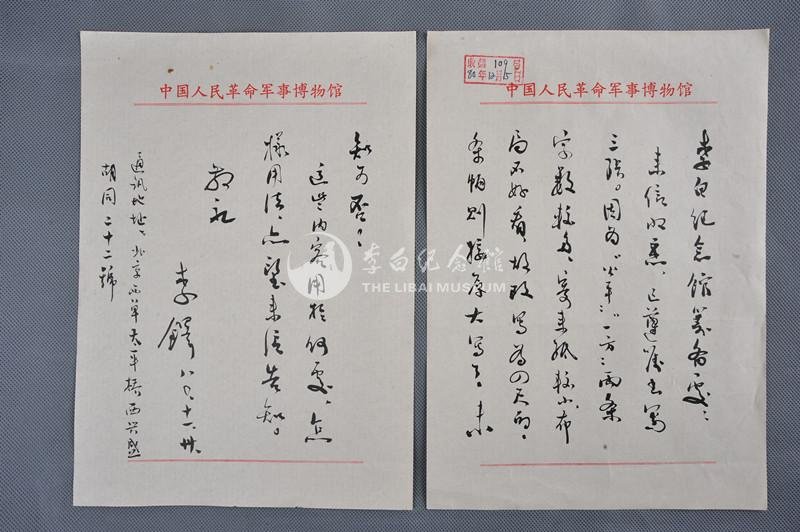 收信 109 号
80年12月15日
中国人民革命军事博物馆
李白纪念馆筹备处:
来信收悉,已遵嘱书写
三张。因为“少年”“一方”两条
字数较多,寄来纸较小,布
局不好看,故改写为四尺的,
条幅则按原大写了。未
中国人民革命军事博物馆
知可否?
这些内容用于何处、怎
样用法,亦望来信告知。
敬礼
李铎 八〇、十一、卅
通讯地址:北京西单太平桥西兴盛
胡同二十二號
李白纪念馆
THE LIBAI MUSEUM